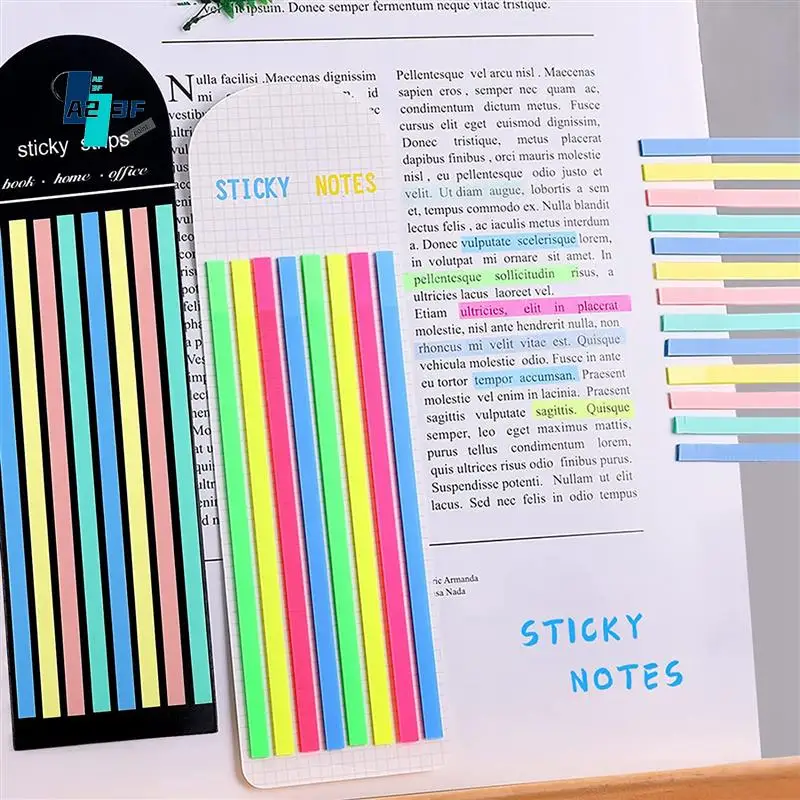 Donec semper fermentum neque vitae tristique.
A2
3F
A2 3F
paint
sticky strips
book · home · office
STICKY NOTES
Nulla facilisi .Maecenas dignissim
mi
Pellentesque vel arcu nisl . Maecenas
sapien eros , semper nec quam ac,
condimentum dictum metus. Fusce
cursus elit euismod dignissim,
Donec tristique, metus placerat
dapibus finibus , orci mauris molestie
nisl , eu pellentesque odio justo et
velit. Ut diam augue, lobortis a sem
et, tempus commodo ex. Nulla blandit
lectus felis , ac iaculis metus interdum
a. Donec vulputate scelerisque lorem,
in volutpat mi ornare sit amet. In
pellentesque sollicitudin risus, a
ultricies lacus laoreet vel.
Etiam ultricies, elit in placerat
molestie, nisl ante hendrerit nulla, non
rhoncus mi velit vitae est. Quisque
vehicula molestie odio. Fusce in ante
eu tortor tempor accumsan. Praesent
molestie vel enim in lacinia. Praesent
sagittis vulputate sagittis. Quisque
semper, leo eget maximus mattis,
purus tellus condimentum lorem,
quis ultrices risus odio finibus purus.
Suspendisse potenti. Nullam ut elit
lacus. Sed nec felis in odio tempus
Armanda
Nada
STICKY
NOTES